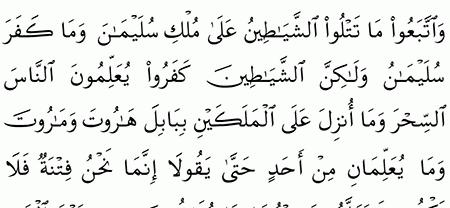 وَٱتَّبَعُوا۟ مَا تَتْلُوا۟ ٱلشَّيَـٰطِينُ عَلَىٰ مُلْكِ سُلَيْمَـٰنَ وَمَا كَفَرَ
سُلَيْمَـٰنُ وَلَـٰكِنَّ ٱلشَّيَـٰطِينَ كَفَرُوا۟ يُعَلِّمُونَ ٱلنَّاسَ
ٱلسِّحْرَ وَمَآ أُنزِلَ عَلَى ٱلْمَلَكَيْنِ بِبَابِلَ هَـٰرُوتَ وَمَـٰرُوتَ
وَمَا يُعَلِّمَانِ مِنْ أَحَدٍ حَتَّىٰ يَقُولَآ إِنَّمَا نَحْنُ فِتْنَةٌ فَلَا